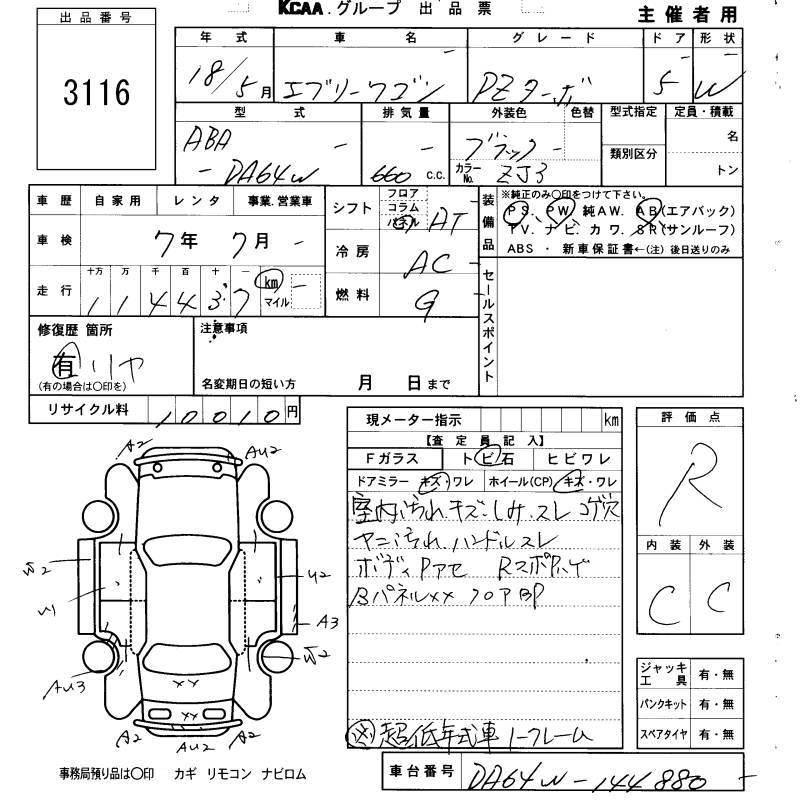 KCAA.グループ 出品票
主催者用
出品番号
3116
年式 車名 グレード ドア 形状
18/5月 エブリーワゴン PZターボ 5 W
型式 排気量 外装色 色替 型式指定 定員・積載
ABA - DA64W
660 c.c.
ブラック
カラーNo. ZJ3
類別区分
名
トン
車歴 自家用 レンタ 事業.営業車
車検 7年 7月
走行 十万 万 千 百 十 一
114437 km マイル
シフト フロア コラム AT
冷房 AC
燃料 G
装備品
※純正のみ〇印をつけて下さい。
PS、PW、純AW、AB(エアバック)
TV、ナビ、カワ、SR(サンルーフ)
ABS・新車保証書←(注)後日送りのみ
セールスポイント
修復歴 箇所
有 リヤ
(有の場合は〇印を)
注意事項
名変期日の短い方 月 日まで
リサイクル料 10010円
現メーター指示 km
【査定員記入】
Fガラス トビ石 ヒビワレ
ドアミラー キズ・ワレ ホイール(CP) キズ・ワレ
室内汚れ キズ.しみ.スレ コゲ穴
ヤニ汚れ ハンドルスレ
ボディPアセ
Bパネルxx フロアBP
※超低年式車
評価点
R
内装 外装
C C
ジャッキ工具 有・無
パンクキット 有・無
スペアタイヤ 有・無
A2 AU2
W2 U2
A3
AU3 W2
XX
XX
A2 AU2 A2
事務局預り品は〇印 カギ リモコン ナビロム
車台番号 DA64W-144880